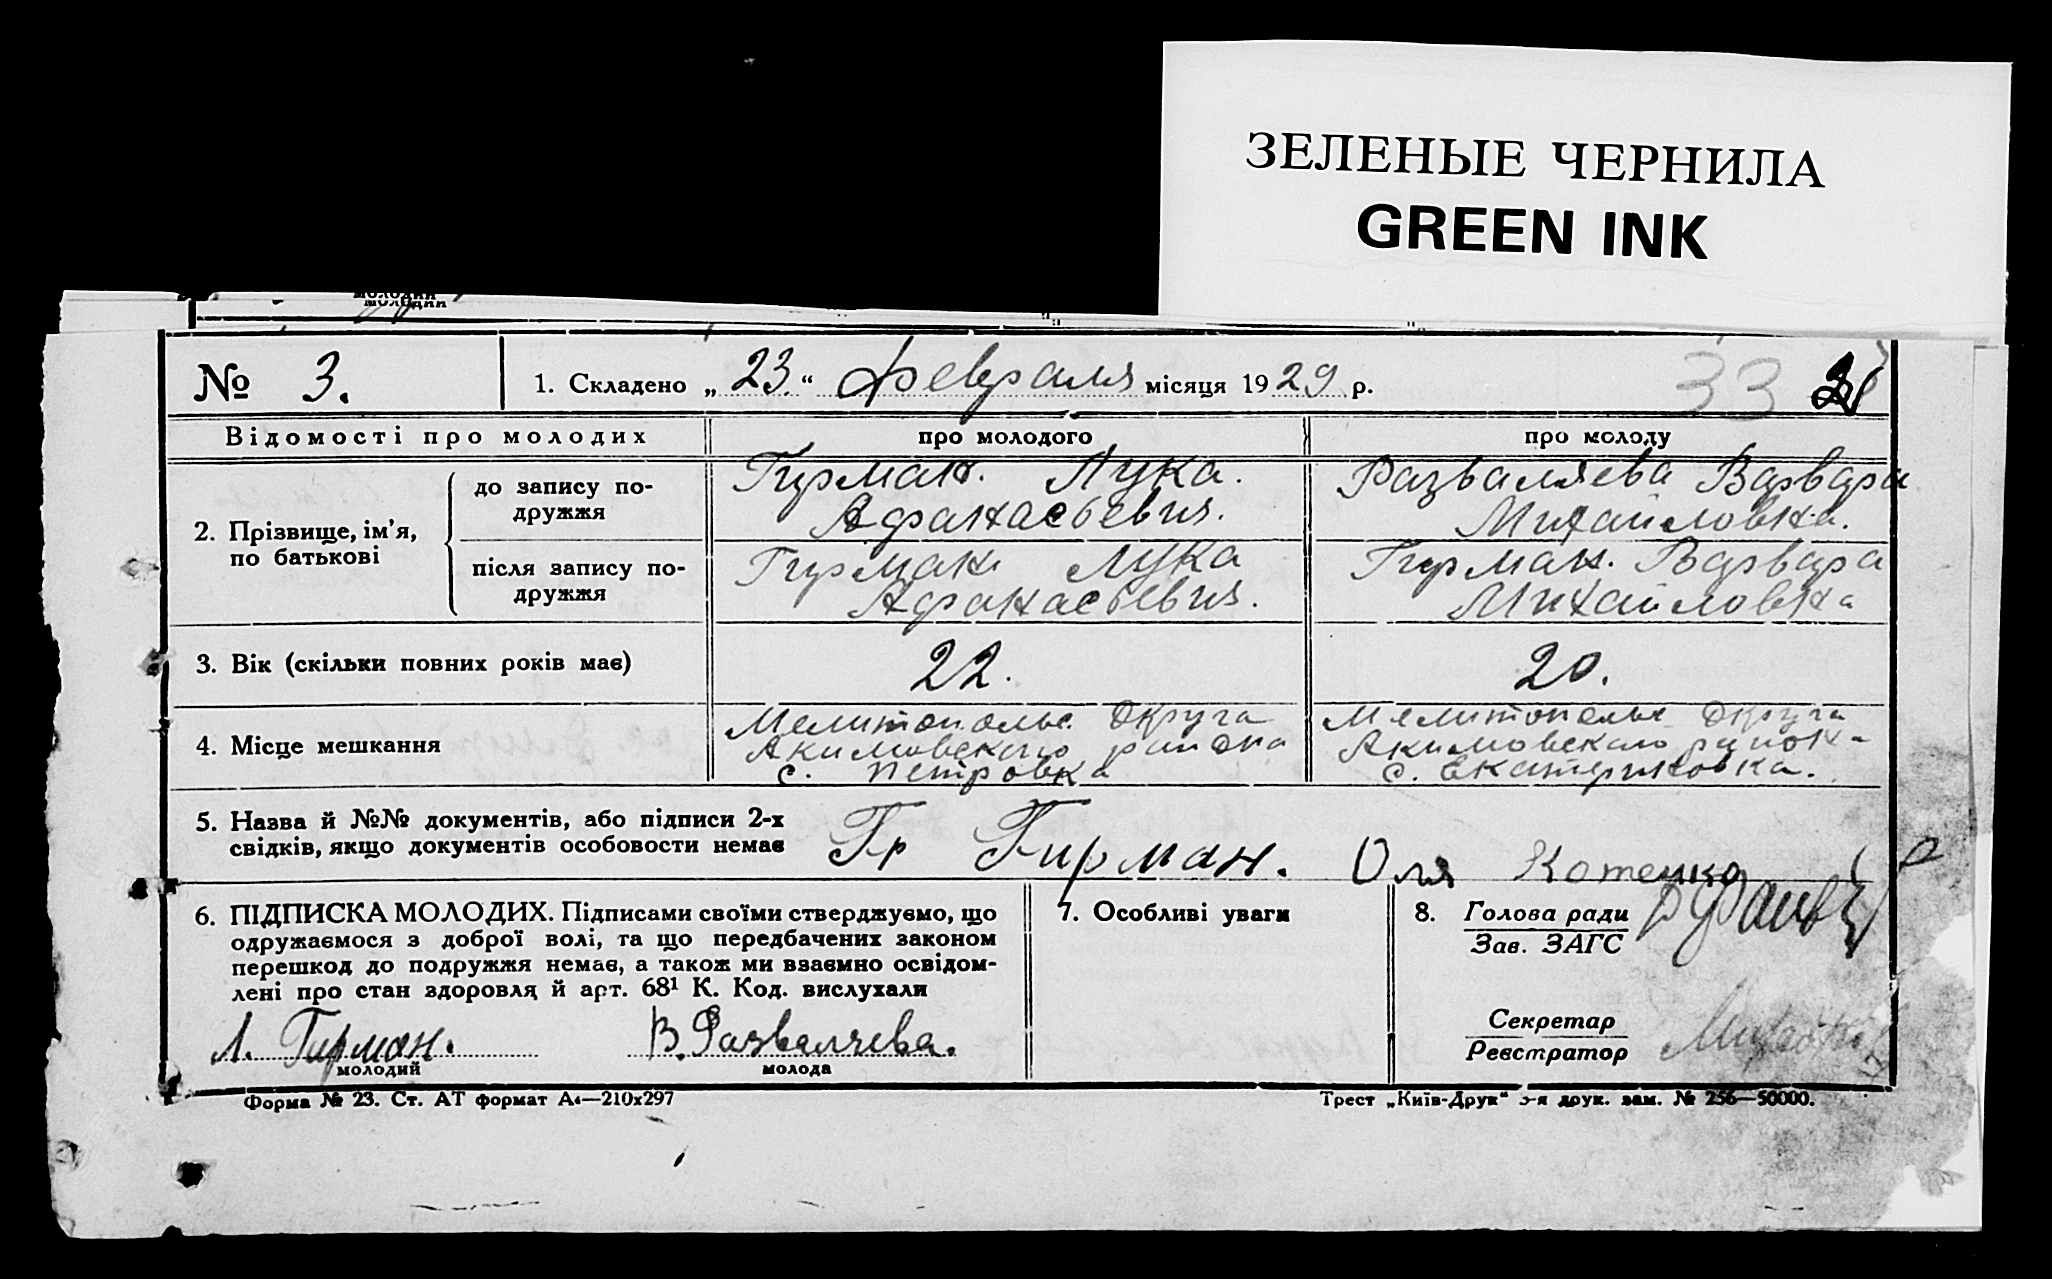 ЗЕЛЕНЫЕ ЧЕРНИЛА
GREEN INK
молодий
№ 3. 1. Складено „23“ февраля місяця 1929 р. 33
Відомості про молодих про молодого про молоду
2. Прізвище, ім’я, по батькові
до запису подружжя
Гирман. Лука. Афанасьевич.
Разваляева Варвара Михайловна.
після запису подружжя
Гирман. Лука Афанасьевич.
Гирман. Варвара Михайловна
3. Вік (скільки повних років має) 22. 20.
4. Місце мешкання
Мелитопольс. Округа
Акимовского района
с. Петровка
Мелитопольс Округа
Акимовского района
с. Екатериновка.
5. Назва й №№ документів, або підписи 2-х
свідків, якщо документів особовости немає
Гр Гирман. Оля Котенко
6. ПІДПИСКА МОЛОДИХ. Підписами своїми стверджуємо, що
одружаємося з доброї волі, та що передбачених законом
перешкод до подружжя немає, а також ми взаємно освідом-
лені про стан здоровля й арт. 68¹ К. Код. вислухали
Л. Гирман. В. Разваляева.
молодий молода
7. Особливі уваги
8. Голова ради
Зав. ЗАГС
Секретар
Реєстратор
Форма № 23. Ст. АТ формат А4—210х297
Трест „Київ-Друк“ 3-я друк. зам. № 256—50000.